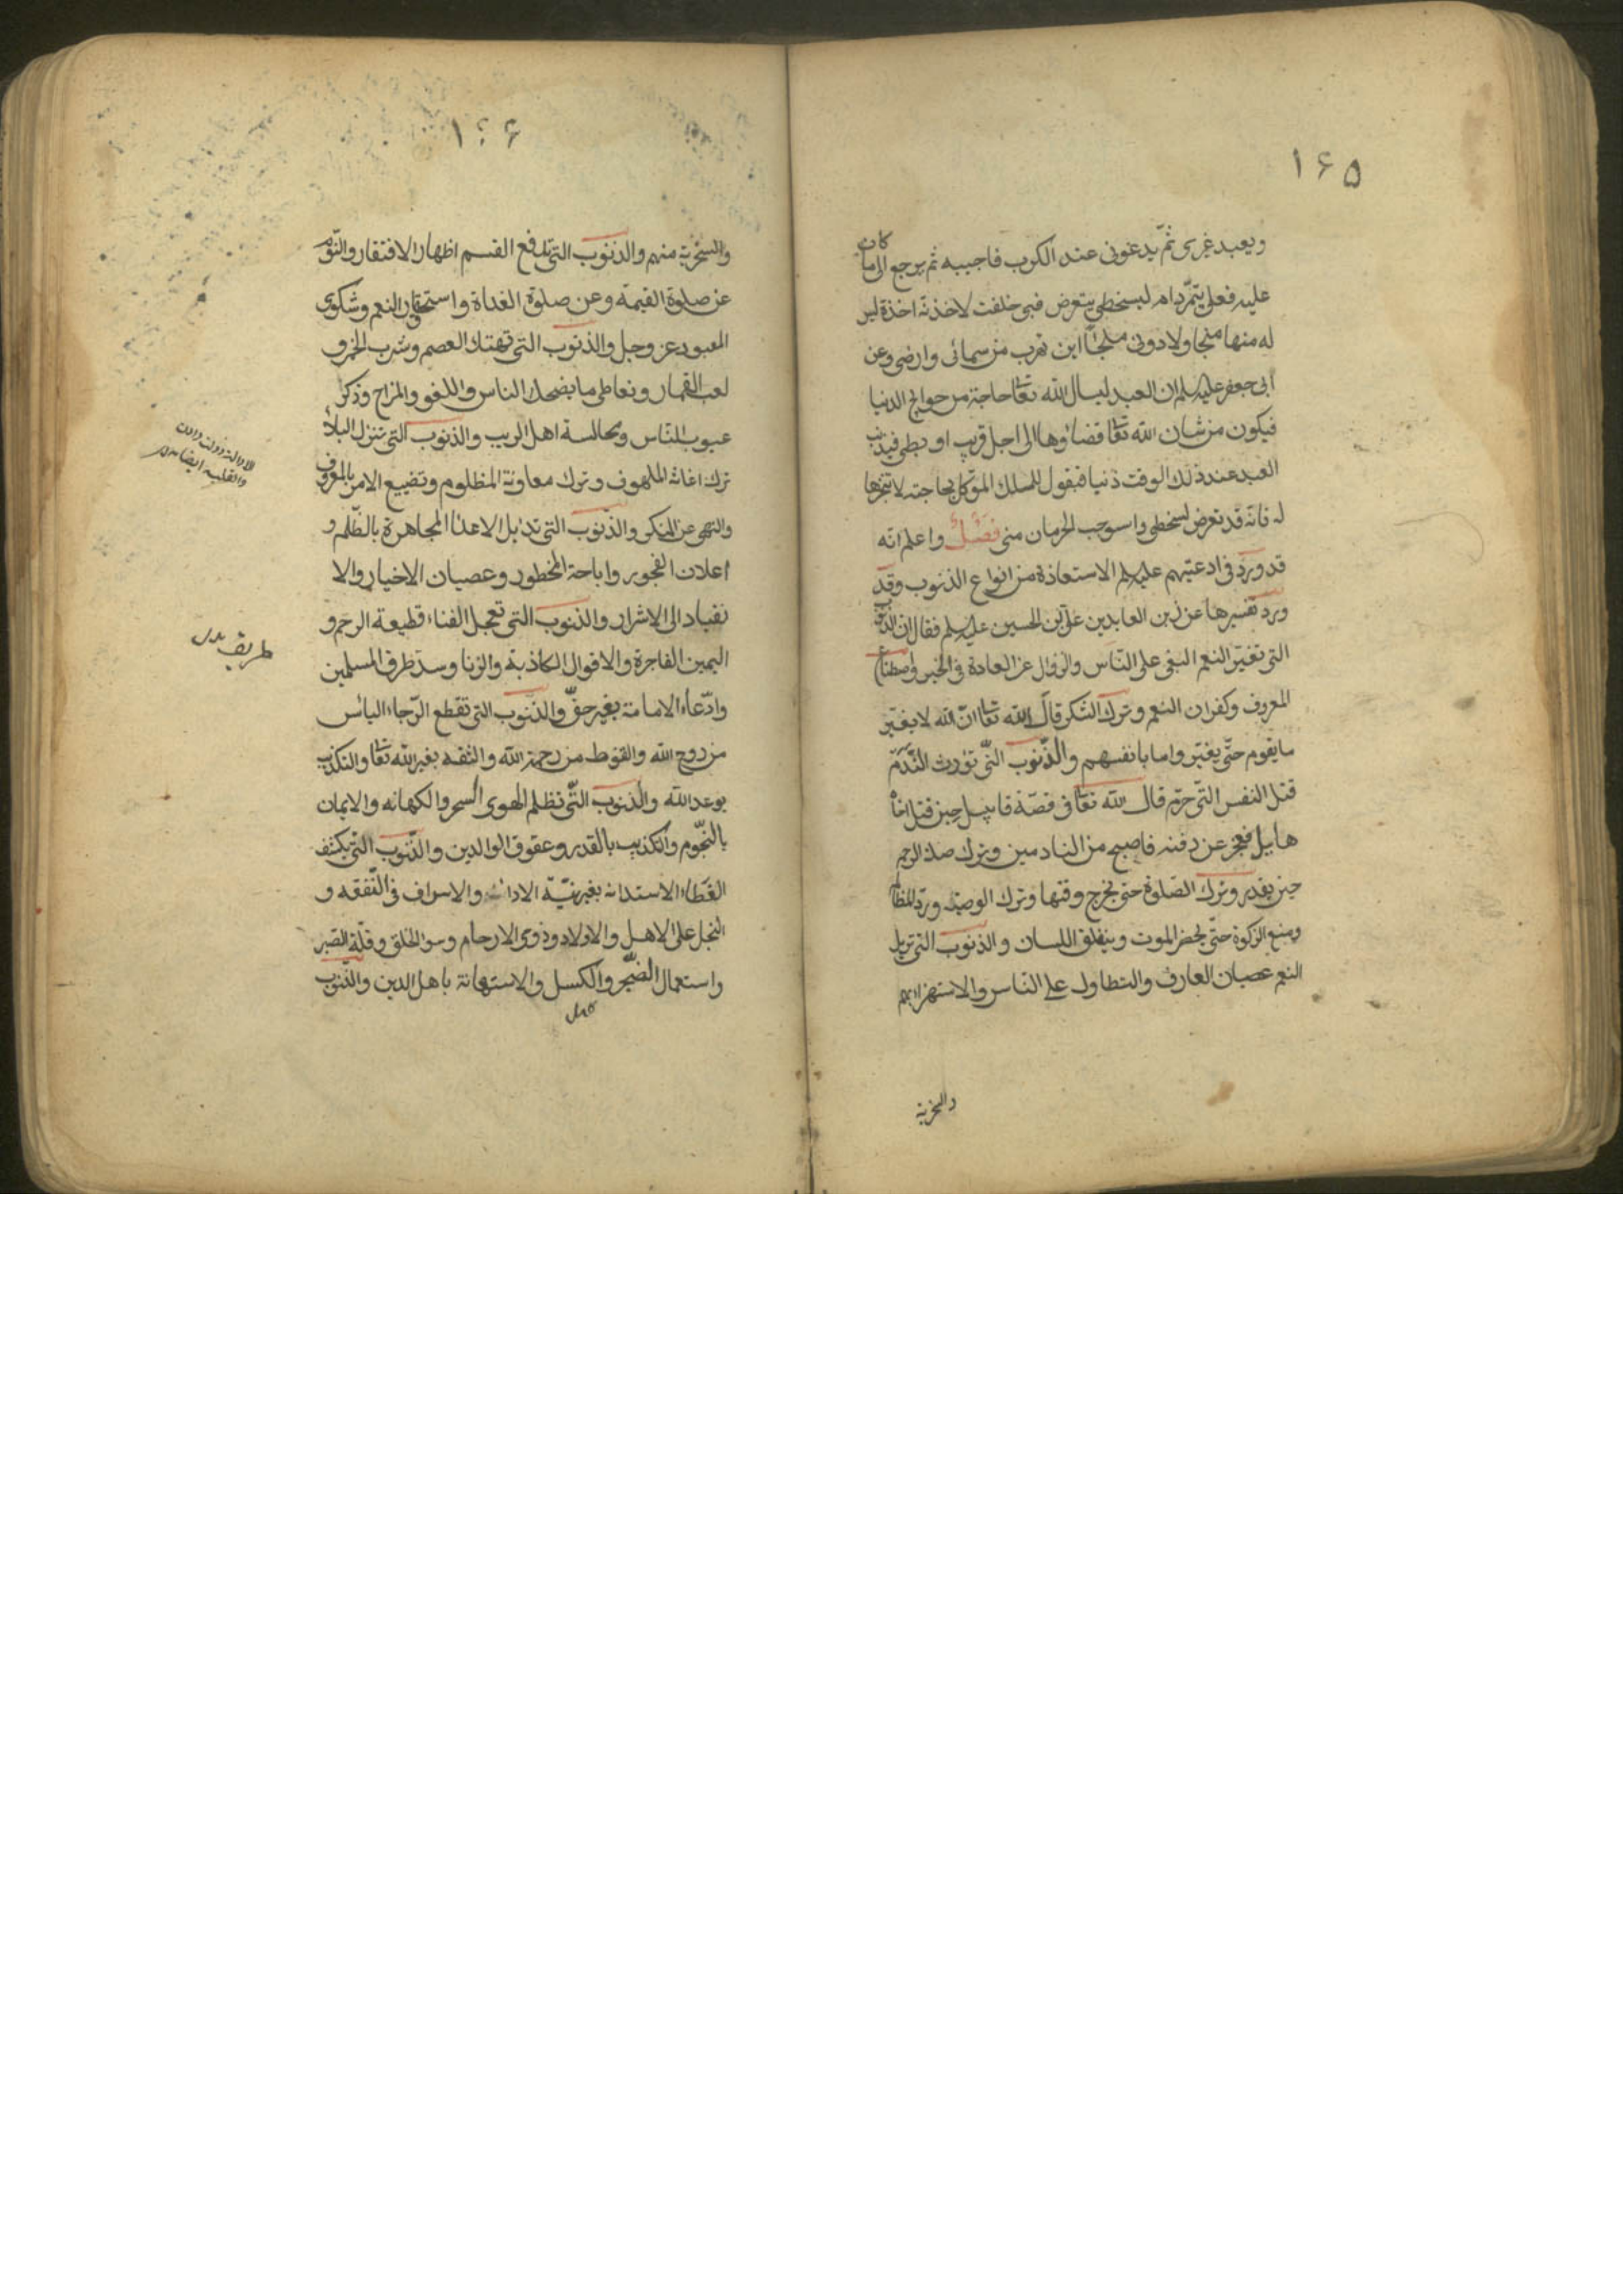 ۱۶۵
ويعبد غيرى ثمّ يدعونى عند الكرب فاجيبه ثم يرجع الى ما كان
عليه فعلى يتمرّد ام لسخطى يتعرض فبى حلفت لاخذنّه اخذة ليس
له منها منجا ولا دونى ملجأ اين تهرب من سمائى وارضى وعن
ابى جعفر عليه السلم ان العبد ليسال الله تعا حاجة من حوايج الدنيا
فيكون من شان الله تعا قضاؤها الى اجل قريب او بطى فيذنب
العبد عند ذلك الوقت ذنبا فيقول للملك الموكل بحاجته لا تنجزها
له فانه قد تعرض لسخطى واسوجب الحرمان منى فصل واعلم انّه
قد ورد فى ادعيتهم عليهم السلم الاستعاذة من انواع الذنوب وقد
ورد تفسيرها عن زين العابدين على بن الحسين عليه السلم فقال ان الذنوب
التى تغيّر النعم البغى على النّاس والزوال عن العادة فى الخير واصطناع
المعروف وكفران النعم وترك الشكر قال الله تعا انّ الله لا يغيّر
ما بقوم حتّى يغيّروا ما بانفسهم والذّنوب التّى تورث النّدم
قتل النفس التّى حرّم قال الله تعا فى قصّة قابيل حين قتل اخاه
هابيل فعجز عن دفنه فاصبح من النادمين وترك صلة الرحم
حين يقدر وترك الصّلوة حتى يخرج وقتها وترك الوصيّة وردّ المظالم
ومنع الزكوة حتّى يحضر الموت وينغلق اللسان والذنوب التى تزيل
النعم عصيان العارف والتطاول على النّاس والاستهزاء بهم
والسخرية
۱۶۶
والسّخريّة منهم والذنوب التى تدفع القسم اظهار الافتقار والنّوم
عن صلوة العتمة وعن صلوة الغداة واستحقار النعم وشكوى
المعبود عز وجل والذنوب التى تهتك العصم وشرب الخمر و
لعب القمار وتعاطى ما يضحك الناس واللغو والمزاح وذكر
عيوب النّاس ومجالسة اهل الريب والذنوب التى تنزل البلاء
ترك اغاثة الملهوف وترك معاونة المظلوم وتضييع الامر بالمعروف
والنهى عن المنكر والذّنوب التى تديل الاعداء المجاهرة بالظّلم و
اعلان الفجور واباحة المحظور وعصيان الاخيار والا
نقياد الى الاشرار والذنوب التى تعجل الفناء قطيعة الرحم و
اليمين الفاجرة والاقوال الكاذبة والزنا وسدّ طرق المسلمين
وادّعاء الامامة بغير حقّ والذّنوب التى تقطع الرّجاء الياس
من روح الله والقنوط من رحمة الله والثقة بغير الله تعا والتكذيب
بوعد الله والذنوب التّى تظلم الهوى السحر والكهانه والايمان
بالنّجوم والتكذيب بالقدر وعقوق الوالدين والذّنوب التّى تكشف
الغطاء الاستدانه بغير نيّة الاداء والاسراف فى النّفقه و
البخل على الاهل والاولاد وذوى الارحام وسوء الخلق وقلّة الصّبر
واستعمال الضّجر والكسل والاستهانة باهل الدين والذّنوب
طريق